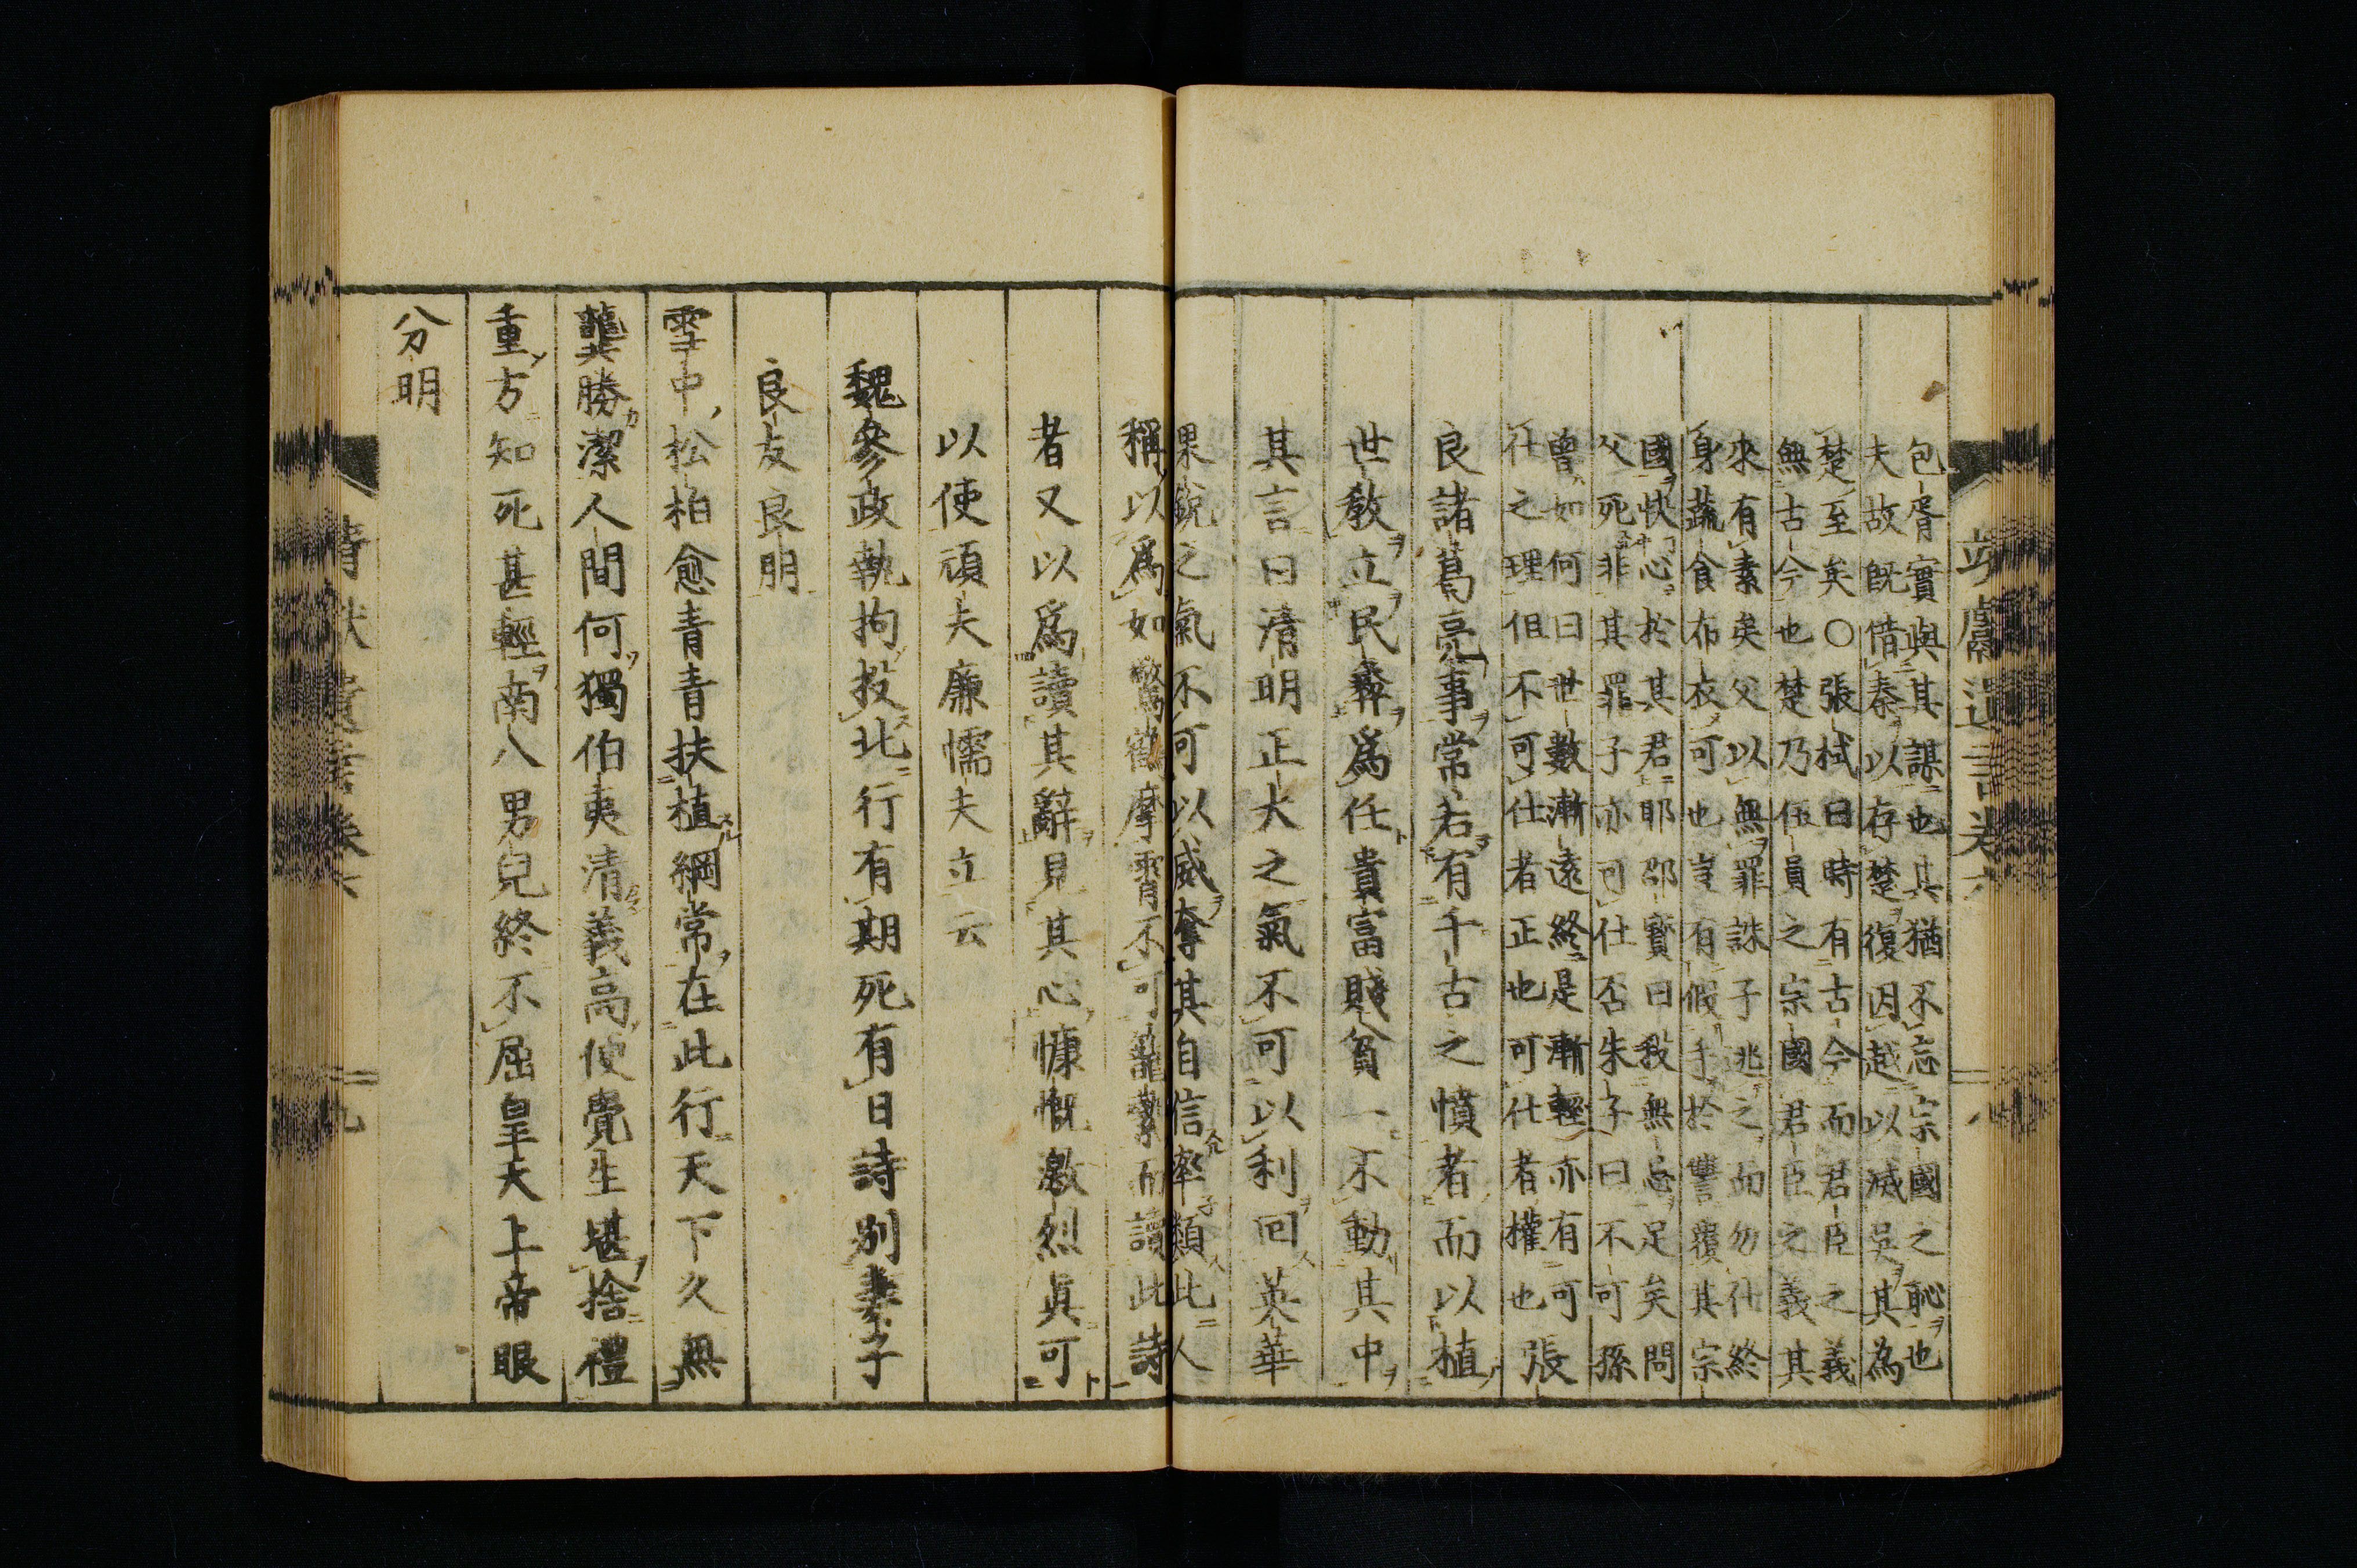 包胥實與其謀也其猶不忘宗國之恥也
夫故既借秦以存楚復因越以滅吳其為
楚至矣○張栻曰時有古今而君臣之義
無古今也楚乃伍員之宗國君臣之義其
來有素矣父以無罪誅子逃之而勿仕終
身蔬食布衣可也豈有假手於讐覆其宗
國快心於其君耶邵寶曰報無忌足矣問
父死非其罪子亦可仕否朱子曰不可孫
曾如何曰世數漸遠終是漸輕亦有可
仕之理但不可仕者正也可仕者權也張
良諸葛亮事常若有千古之憤者而以植
世教立民彝爲任貴富賤貧一不動其中
其言曰清明正大之氣不可以利回英華
果銳之氣不何以威奪其自信率類此人
稱以爲如驚鶴摩霄不可籠縶而讀此詩
者又以爲讀其辭見其心慷慨激烈眞可
以使頑夫廉懦夫立云
魏參政執拘投北行有期死有日詩別妻子
良友良朋
雪中松柏愈青青扶植綱常在此行天下久無
龔勝潔人間何獨伯夷清義高便覺生堪捨禮
重方知死甚輕南八男兒終不屈皇天上帝眼
分明